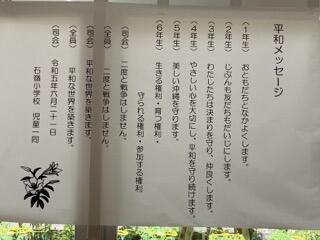 平和メッセージ
(1年生) おともだちとなかよくします。
(2年生) じぶんも友だちもだいじにします。
(3年生) わたしたちは決まりを守り、仲良くします。
(4年生) やさしい心を大切にし、平和を守り続けます。
(5年生) 美しい沖縄を守ります。
(6年生) 生きる権利・育つ権利・
守られる権利・参加する権利・
(司会) 二度と戦争はしません。
(全員) 二度と戦争はしません。
(司会) 平和な世界を築きます。
(全員) 平和な世界を築きます。
(司会) 令和五年六月二十一日
石嶺小学校 児童一同